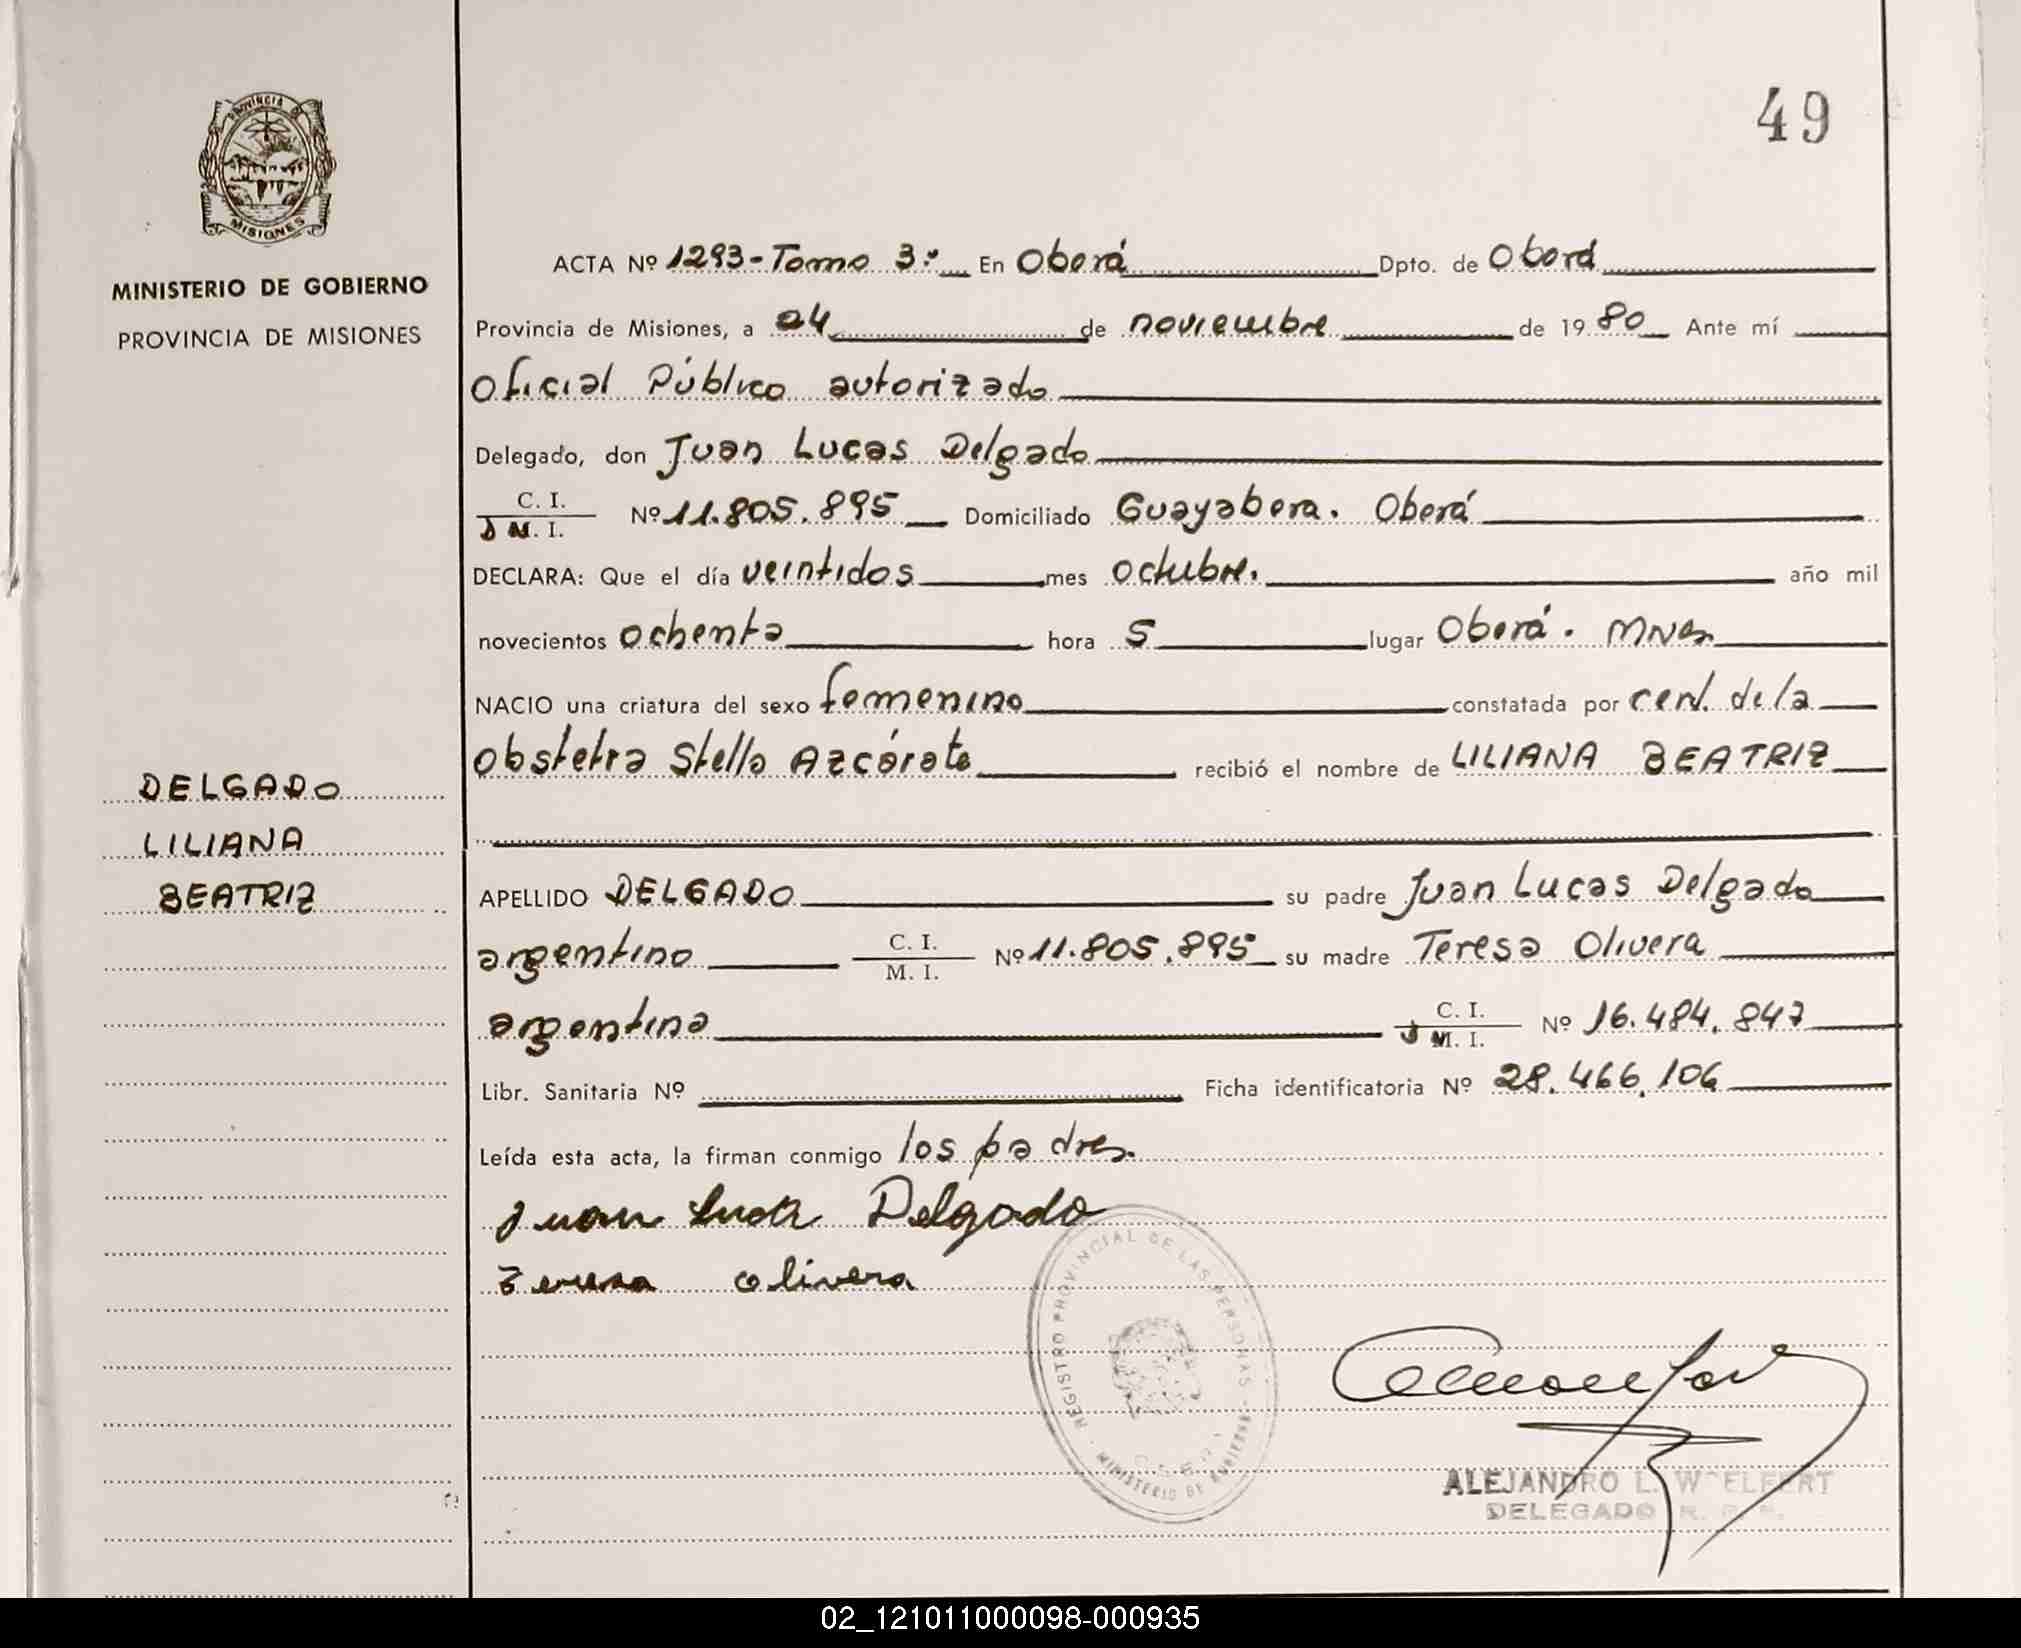 PROVINCIA D
MISIONES
MINISTERIO DE GOBIERNO
PROVINCIA DE MISIONES
DELGADO
LILIANA
BEATRIZ
49
ACTA Nº 1293-Tomo 3º En Oberá Dpto. de Oberá
Provincia de Misiones, a 04 de noviembre de 1980 Ante mí
Oficial Público autorizado
Delegado, don Juan Lucas Delgado
C. I.
D M. I. Nº 11.805.895 Domiciliado Guayabera. Oberá
DECLARA: Que el día veintidos mes octubre. año mil
novecientos ochenta hora 5 lugar Oberá. Mnes
NACIO una criatura del sexo femenino constatada por cert. de la
Obstetra Stella Azcárate recibió el nombre de LILIANA BEATRIZ
APELLIDO DELGADO su padre Juan Lucas Delgado
argentino C. I. M. I. Nº 11.805.895 su madre Teresa Olivera
argentina C. I. D M. I. Nº 16.484.847
Libr. Sanitaria Nº Ficha identificatoria Nº 28.466.106
Leída esta acta, la firman conmigo los padres.
Juan Lucas Delgado
Teresa Olivera
REGISTRO PROVINCIAL DE LAS PERSONAS
MINISTERIO DE GOBIERNO
ALEJANDRO L.
DELEGADO R. P. P.
02_121011000098-000935